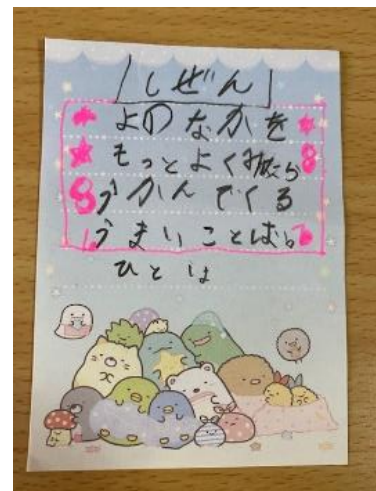 しぜん
よのなかを
もっとよくみたら
うかんでくる
うまいことばら
ひとは